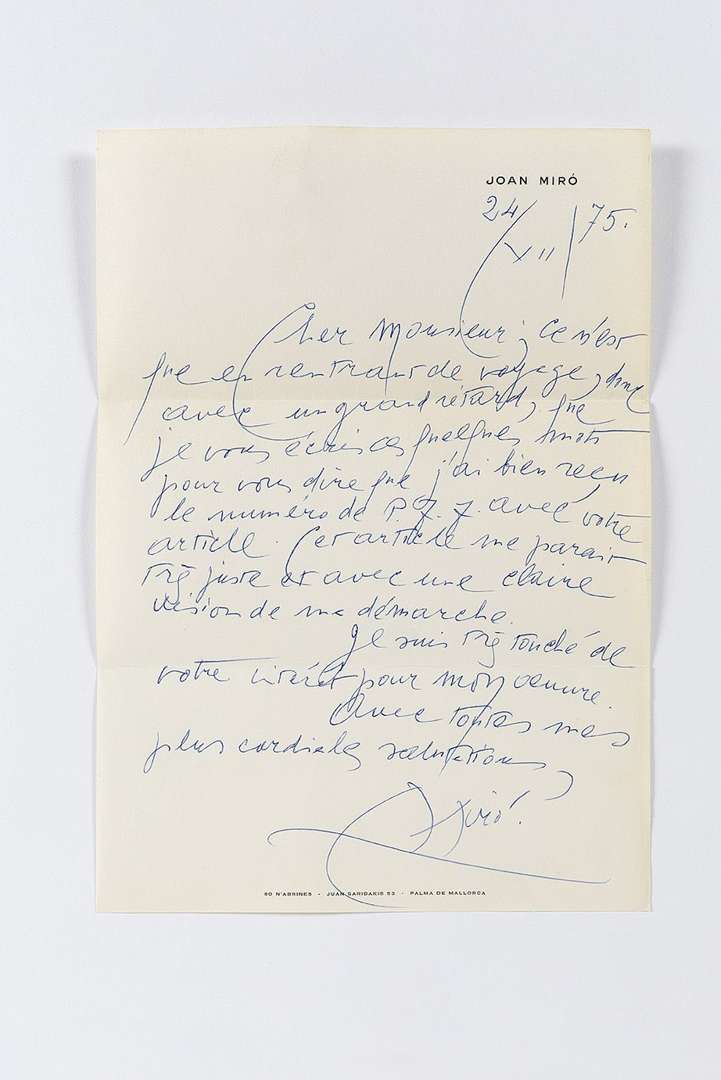 JOAN MIRÓ
24/XII/75.
Cher Monsieur, Ce n'est
que en rentrant de voyage, donc
avec un grand retard, que
je vous écris ces quelques mots
pour vous dire que j'ai bien reçu
le numéro de P. J. J. avec votre
article. Cet article me paraît
très juste et avec une claire
vision de ma démarche.
Je suis très touché de
votre intérêt pour mon oeuvre.
Avec toutes mes
plus cordiales salutations,
Miró.
SO N'ABRINES - JUAN SARIDAKIS 53 - PALMA DE MALLORCA